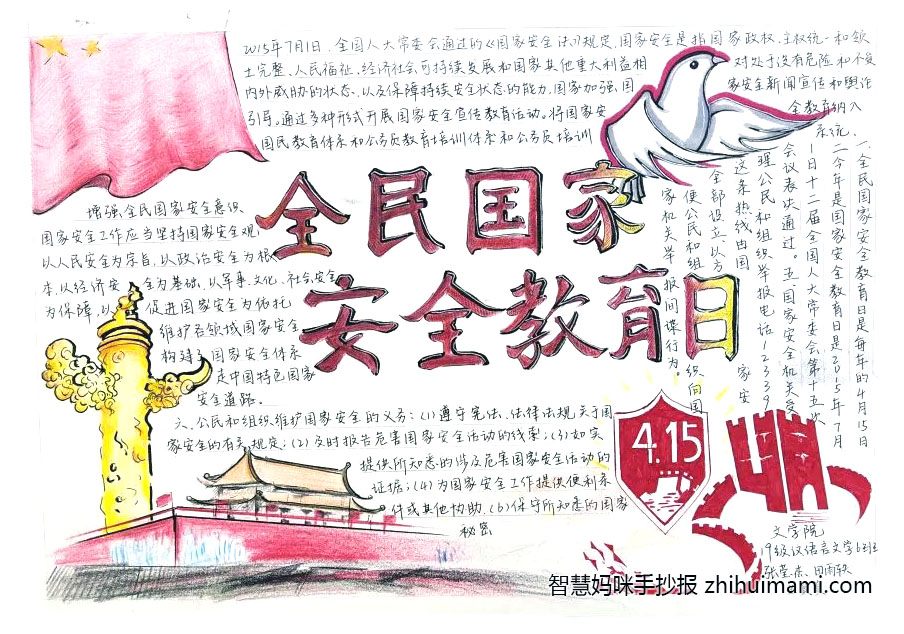 2015年7月1日,全国人大常委会通过的《国家安全法》规定,国家安全是指国家政权、主权统一和领
土完整、人民福祉、经济社会可持续发展和国家其他重大利益相对处于没有危险和不受
内外威胁的状态,以及保障持续安全状态的能力。国家加强国家安全新闻宣传和舆论
引导。通过多种形式开展国家安全宣传教育活动。将国家安全教育纳入
国民教育体系和公务员教育培训体系和公务员培训系统.
全民国家
安全教育日
增强全民国家安全意识
国家安全工作应当坚持国家安全观,
以人民安全为宗旨,以政治安全为根
本,以经济安全为基础,以军事、文化、社会安全
为保障,以促进国家安全为依托
维护各领域国家安全
构建国家安全体系
走中国特色国家
安全道路。
一、全民国家安全教育日是每年的4月15日
二今年是国家安全教育日是2015年7月
1日十二届全国人大常委会第十五次
会议表决通过。五、国家安全机关受
理公民和组织举报电话12339
这条热线由国家安
全部设立,以方
便公民和组织向国
家机关举报间谍行为。
六、公民和组织维护国家安全的义务:(1)遵守宪法、法律法规关于国
家安全的有关规定;(2)及时报告危害国家安全活动的线索;(3)如实
提供所知悉的涉及危害国家安全活动的
证据;(4)为国家安全工作提供便利条
件或其他协助.(6)保守所知悉的国家
秘密
4.15
文学院
19级汉语言文学6班
智慧妈咪手抄报 zhihuimami.com